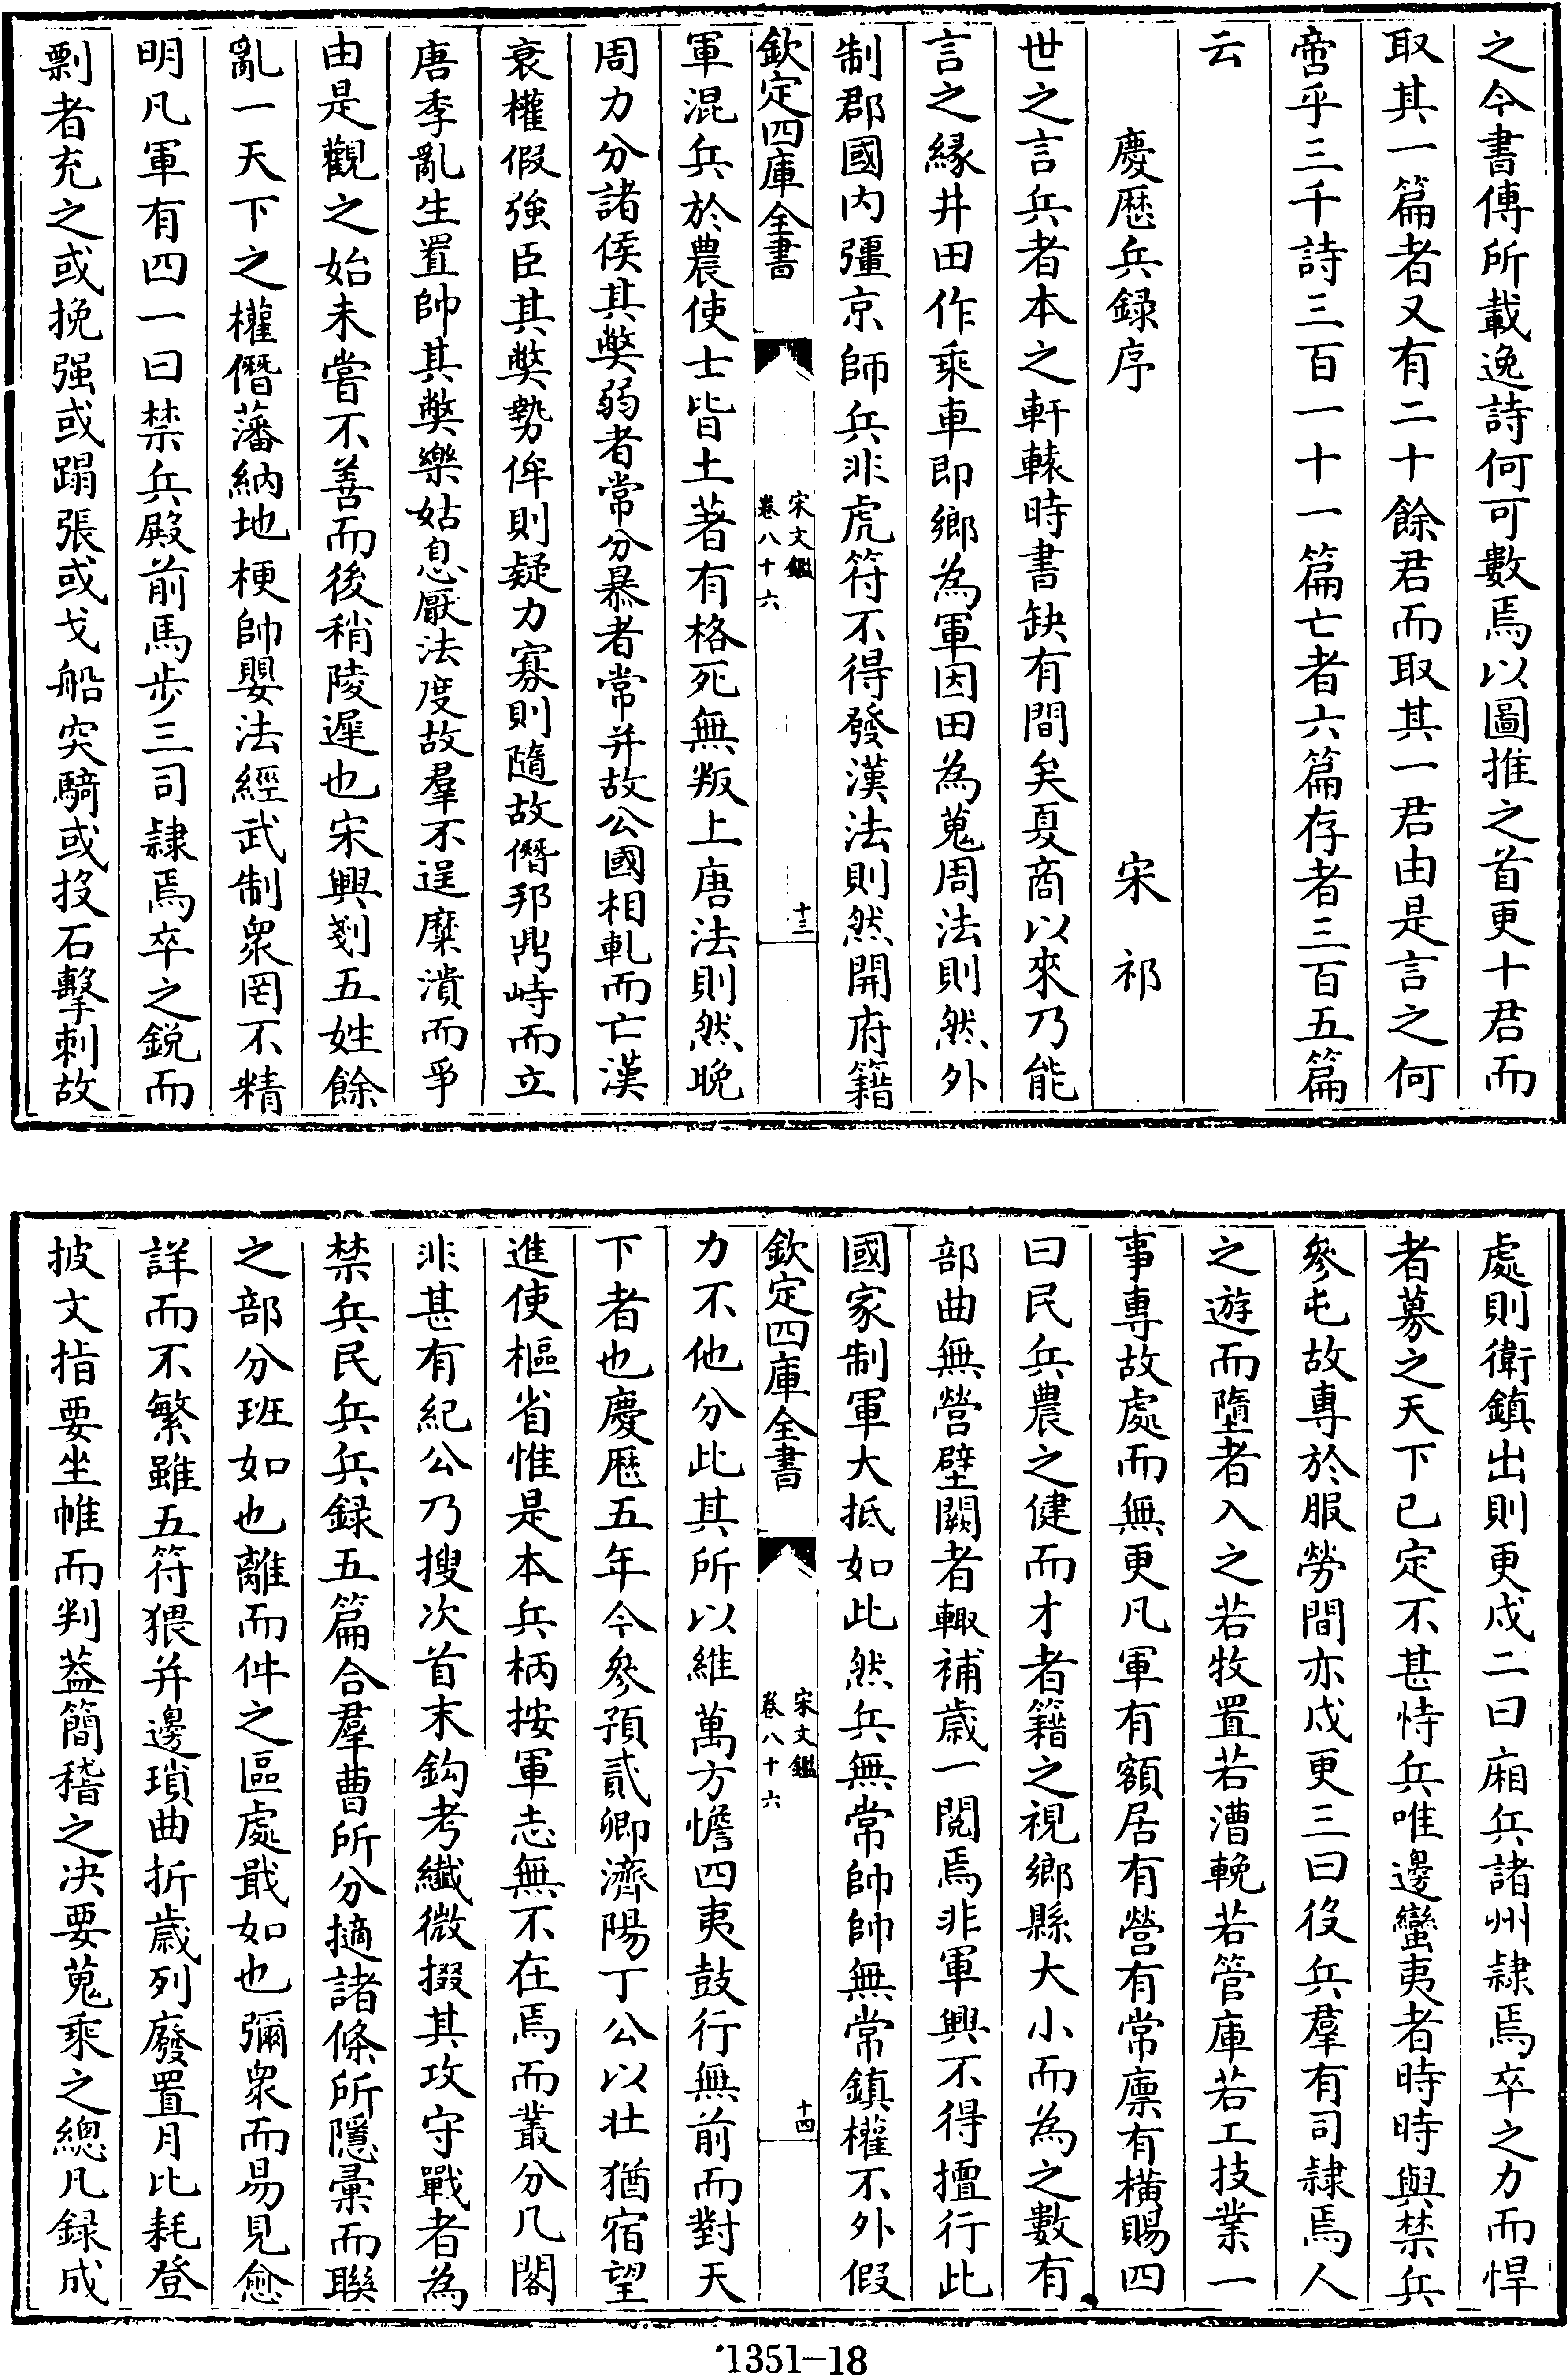 之今書傳所載逸詩何可數焉以圖推之首更十君而
取其一篇者又有二十餘君而取其一君由是言之何
啻乎三千詩三百一十一篇亡者六篇存者三百五篇
云
慶厯兵録序
宋祁
世之言兵者本之軒轅時書缺有間矣夏商以來乃能
言之緣井田作乘車即鄉為軍因田為蒐周法則然外
制郡國內彊京師兵非虎符不得發漢法則然開府籍
欽定四庫全書
宋文鑑
卷八十六
十三
軍混兵於農使士皆土著有格死無叛上唐法則然晚
周力分諸侯其獘弱者常分暴者常并故公國相軋而亡漢
衰權假強臣其獘勢侔則疑力寡則隨故僭邦鼎峙而立
唐季亂生置帥其獘樂姑息厭法度故羣不逞糜潰而爭
由是觀之始未嘗不善而後稍陵遲也宋興剗五姓餘
亂一天下之權僭藩納地梗帥嬰法經武制衆罔不精
明凡軍有四一曰禁兵殿前馬步三司隷焉卒之銳而
剽者充之或挽强或蹋張或戈船突騎或投石擊刺故
處則衛鎮出則更戍二曰廂兵諸州隷焉卒之力而悍
者募之天下已定不甚恃兵唯邊蠻夷者時時與禁兵
參屯故專於服勞間亦戍更三曰役兵羣有司隷焉人
之遊而墮者入之若牧置若漕輓若管庫若工技業一
事專故處而無更凡軍有額居有營有常廪有橫賜四
曰民兵農之健而才者籍之視鄉縣大小而為之數有
部曲無營壁闕者輙補歳一閱焉非軍興不得擅行此
國家制軍大抵如此然兵無常帥帥無常鎮權不外假
欽定四庫全書
宋文鑑
卷八十六
十四
力不他分此其所以維萬方憺四夷鼓行無前而對天
下者也慶厯五年今參預貳卿濟陽丁公以壯猶宿望
進使樞省惟是本兵柄按軍志無不在焉而叢分几閣
非甚有紀公乃搜次首末鈎考纎微掇其攻守戰者為
禁兵民兵兵録五篇合羣曹所分擿諸條所隱彙而聯
之部分班如也離而件之區處戢如也彌衆而易見愈
詳而不繁雖五符猥并邊瑣曲折歳列廢置月比耗登
披文指要坐帷而判葢簡稽之决要蒐乘之總凡録成
1351-18